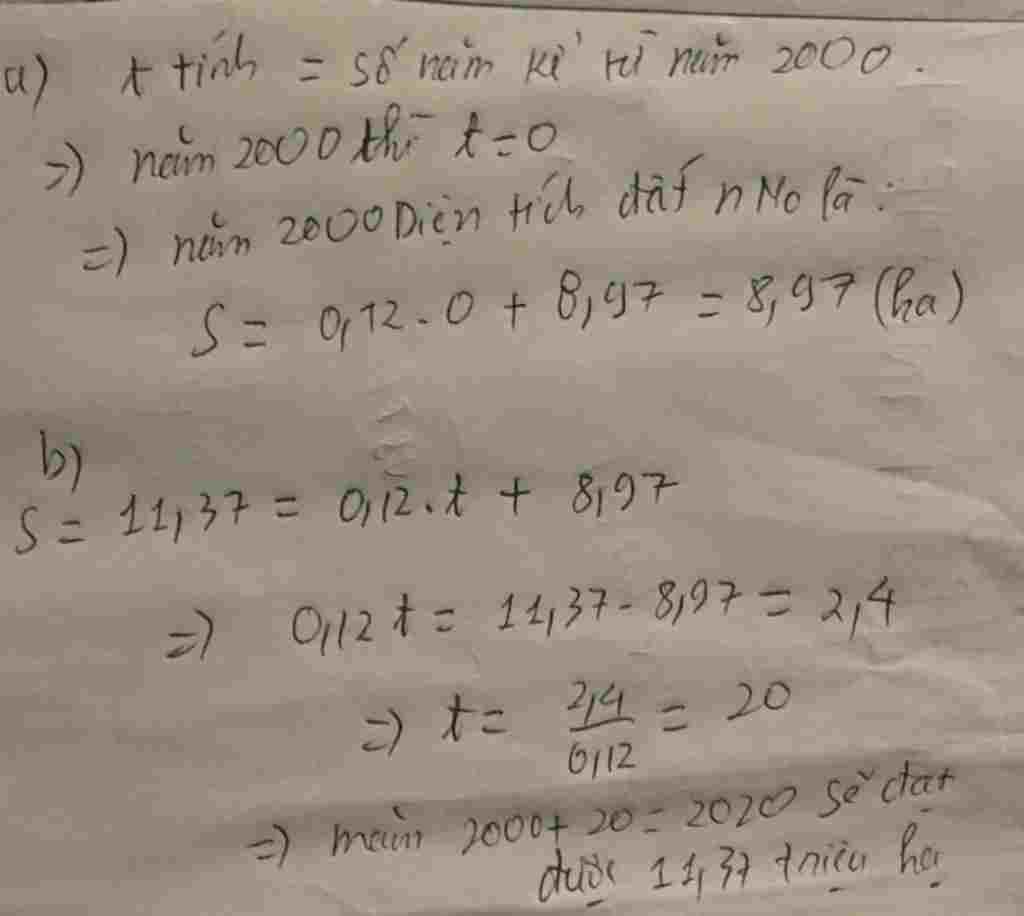 a) t tính = số năm kể từ năm 2000.
=) năm 2000 thì t=0
=) năm 2000 Diện tích đất nNo là:
S = 0,12.0 + 8,97 = 8,97 (ha)
b)
S = 11,37 = 0,12.t + 8,97
=) 0,12t = 11,37 - 8,97 = 2,4
=) t = 2,4/0,12 = 20
=) năm 2000+20=2020 sẽ đạt
được 11,37 triệu ha